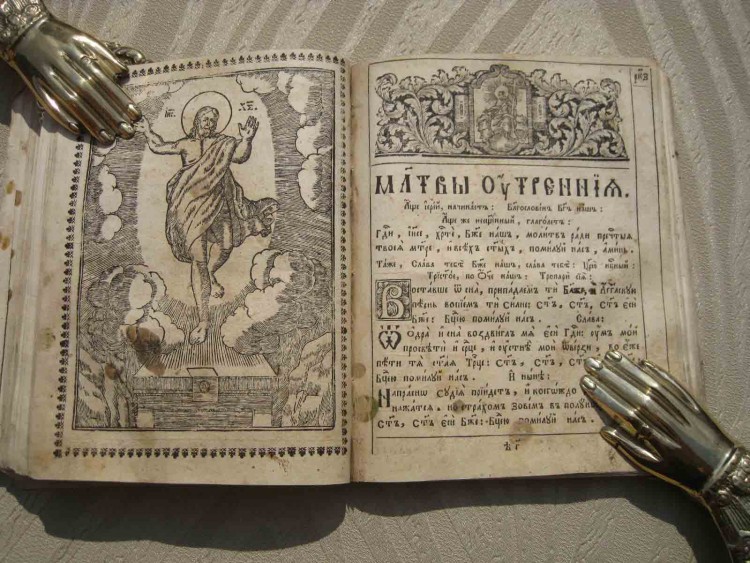 ІИ҃С. ХС҃.
МАТ҃ВЫ ОУ҆ТРЕННІѦ.
А҆ще і҆ере́й, начина́етъ: Блгⷭ҇ове́нъ Бг҃ъ на́шъ:
А҆ще же несщ҃е́нный, глаго́летъ:
Гдⷭ҇и, І҆и҃се, хрⷭ҇те́, Бж҃е на́шъ, моли́твъ ра́ди пречⷭ҇тыѧ
твоеѧ̀ мт҃ре, и҆ всѣ́хъ ст҃ы́хъ, поми́лꙋй на́съ, а҆ми́нь.
Та́же, Сла́ва тебѣ̀ Бж҃е на́шъ, сла́ва тебѣ̀: Цр҃ю̀ нбⷭ҇ный:
Трист҃о́е, по Ѻ҆́ч҃е на́шъ: Тропарѝ сїѧ̑:
Воста́вше ѿ сна̀, припа́даемъ тѝ Бл҃же, и҆ А҆́гг҃лскꙋю
пѣ́снь вопїе́мъ тѝ си́лне: ст҃ъ, ст҃ъ, ст҃ъ є҆сѝ
Бж҃е: Бцⷣею поми́лꙋй на́съ. Сла́ва:
Ѿ ѻ҆дра̀ и҆ сна̀ воздви́глъ мѧ̀ є҆сѝ Гдⷭ҇и: ᲂу҆́мъ мо́й
просвѣтѝ и҆ срⷣце, и҆ ᲂу҆стнѣ̀ моѝ ѿве́рзи, во є҆́же
пѣ́ти тѧ̀ ст҃а́ѧ Трⷪ҇це: Ст҃ъ, ст҃ъ,
Бцⷣею поми́лꙋй на́съ. И҆ ны́нѣ:
Напра́снѡ Сꙋдїѧ̀ прїи́детъ, и҆ коегѡ́ждо
нажа́тсѧ. но стра́хомъ зове́мъ въ полꙋ́н
ст҃ъ, ст҃ъ є҆сѝ Бж҃е: Бцⷣею поми́лꙋй на́съ.